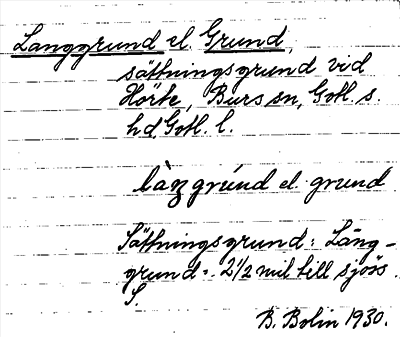 Langgrund el. Grund,
sättningsgrund vid
Hörte, Burs sn, Gotl. s.
hd, Gotl. l.
làŋgrúnd el. grund
Sättningsgrund: Lång-
grund. 2 1/2 mil till sjöss.
S.
B. Bolin 1930.